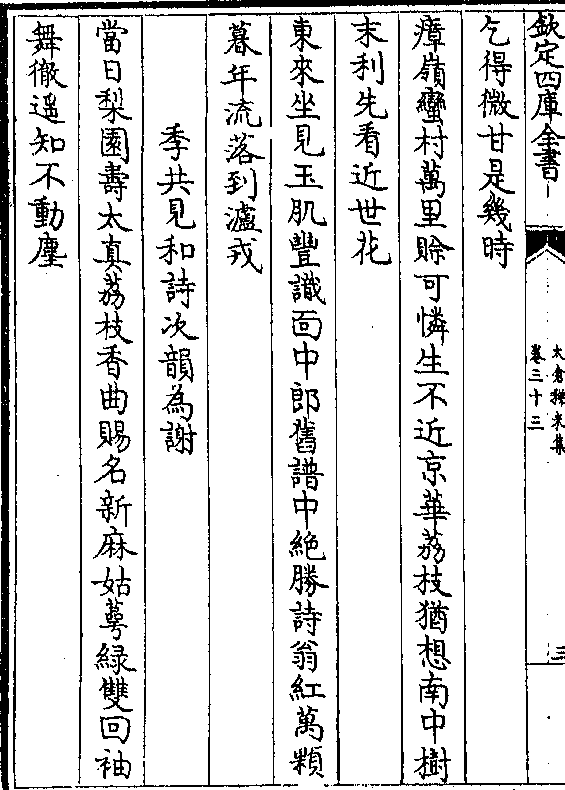 欽定四庫全書
太倉稊米集
卷三十三
三
乞得微甘是幾時
瘴嶺蠻村萬里賒可憐生不近京華荔枝猶想南中樹
末利先看近世花
東來坐見玉肌豐識面中郎舊譜中絶勝詩翁紅萬顆
暮年流落到瀘戎
季共見和詩次韻為謝
當日梨園壽太真荔枝香曲賜名新麻姑萼緑雙回袖
舞徹遥知不動塵